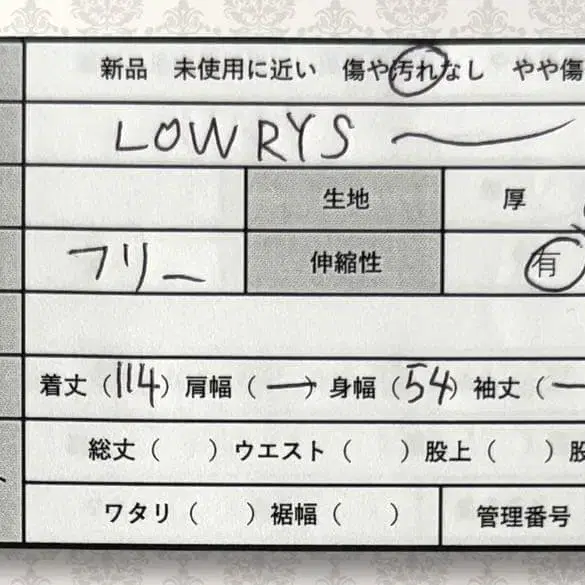 新品 未使用に近い 傷や汚れなし やや傷
LOWRYS
生地 厚
フリー 伸縮性 有
着丈（114）肩幅（ー）身幅（54）袖丈（ー
総丈（ ）ウエスト（ ）股上（ ）股
ワタリ（ ）裾幅（ ） 管理番号